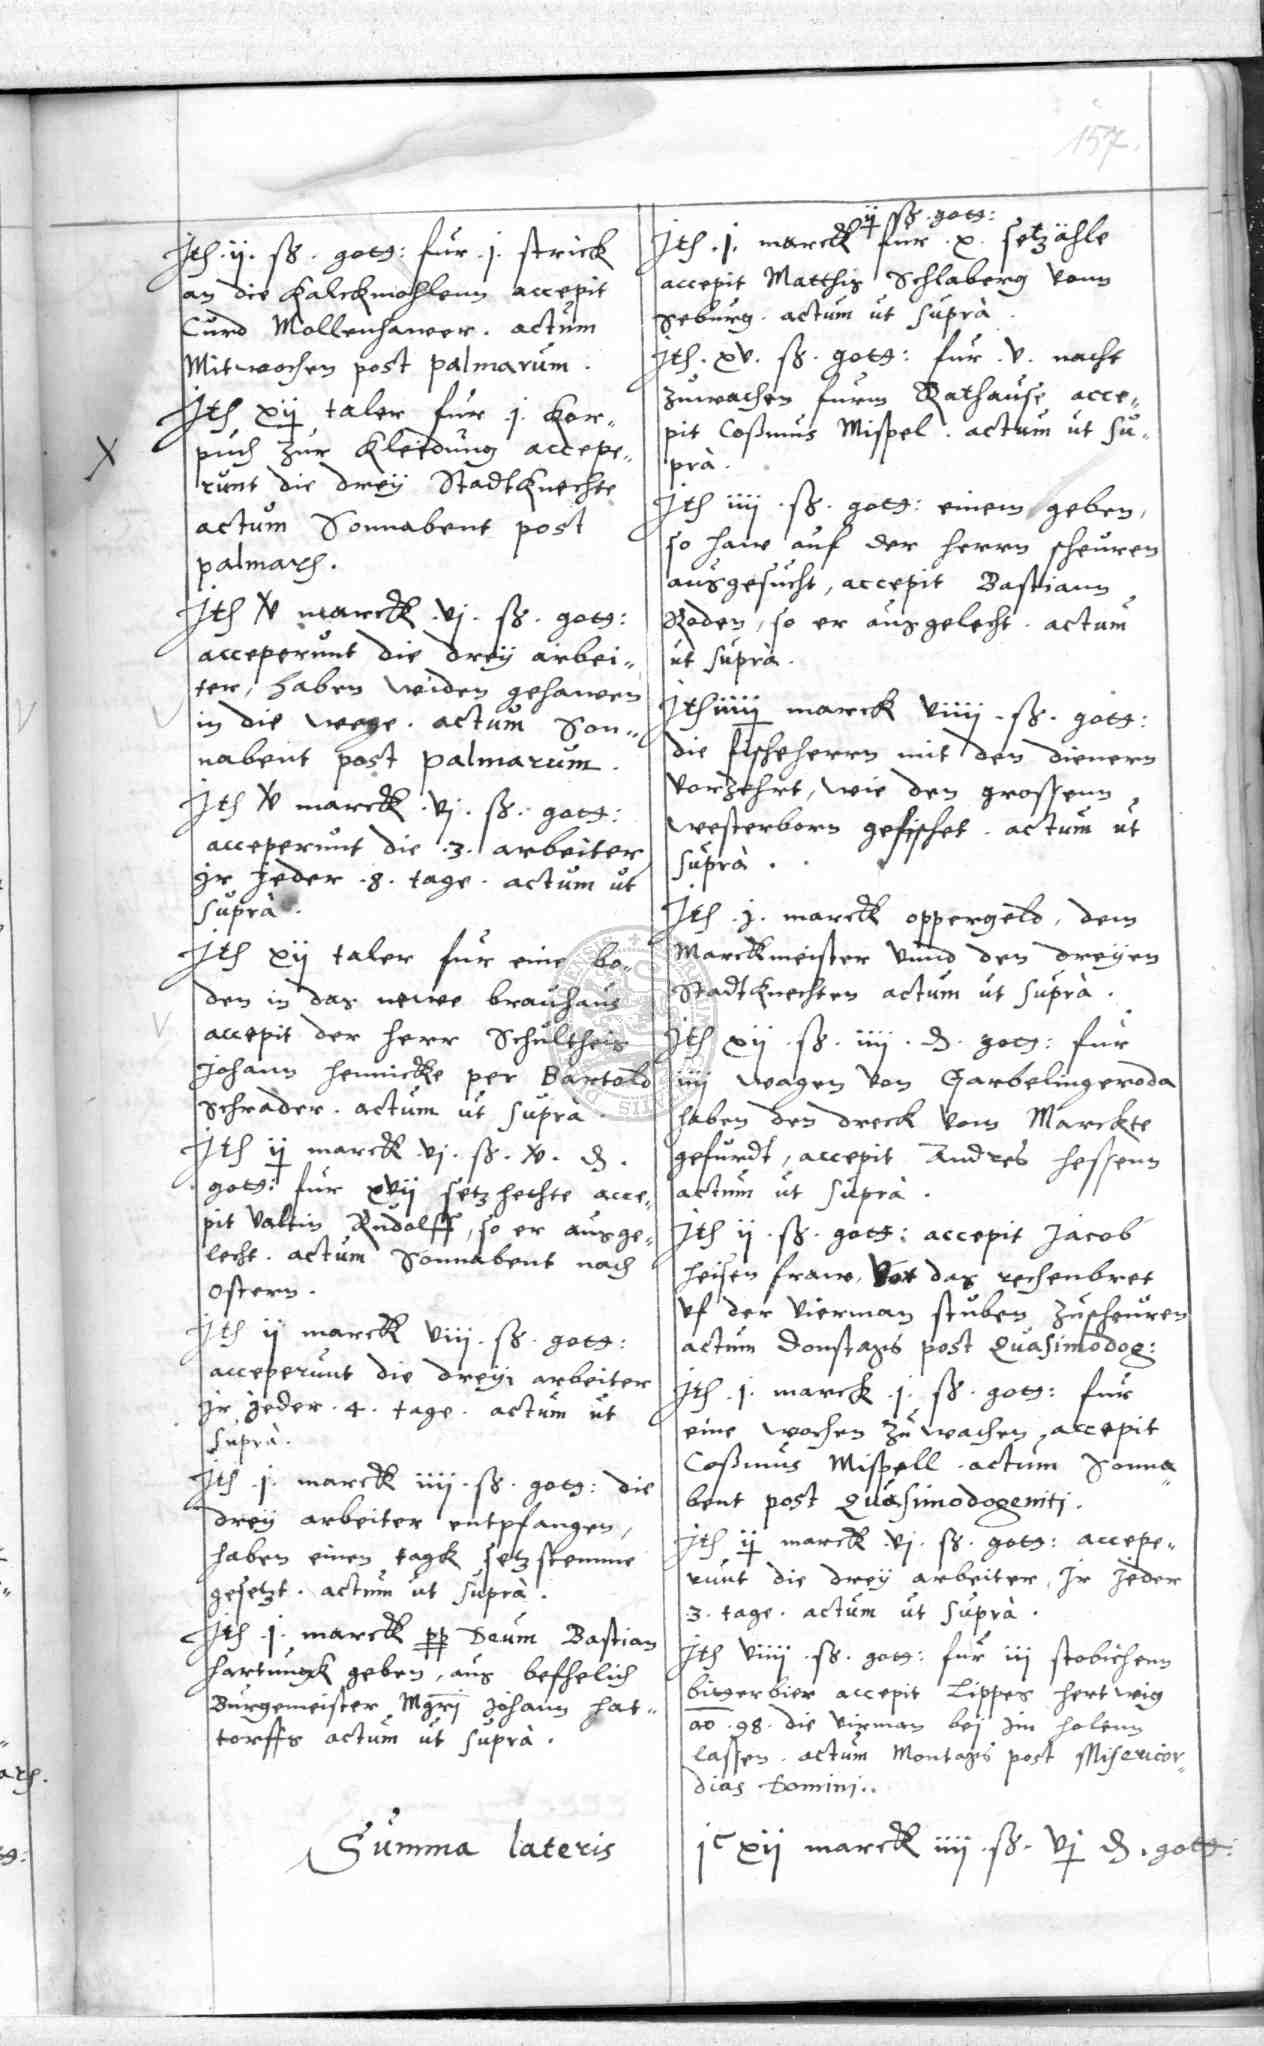 157.
Jth .ij. ß. gotg: fur .j. strick
an die Kalckmohlenn accepit
Curd Mollenhawer. actum
Mitwochen post palmarum.
Jth xij taler fur .j. Kar„
puch zur Kleidung accepe„
runt die dreÿ StadtKnechte
actum Sonnabent post
palmarh.
Jth v marck .vj. ß. gotg:
acceperunt die dreÿ arbei„
ter, haben weiden gehawen
in die wege. actum Son„
nabent post palmarum.
Jth v marck .vj. ß. gotg:
acceperunt die .3. arbeiter
jr jeder .8. tage. actum ut
supra.
Jth xij taler fur eine bo„
den in das newe brauhaus
accepit der herr Schultheis
Johann hennicke per Bartold
Schrader. actum ut supra.
Jth ij marck .vj. ß. v. d.
gotg: fur xvij setzhechte acce„
pit Valtin Rudolff, so er ausge„
lecht. actum Sonnabent nach
ostern.
Jth ij marck viij. ß. gotg:
acceperunt die dreÿ arbeiter
jr jeder .4. tage. actum ut
supra.
Jth .j. marck iiij. ß. gotg: die
dreÿ arbeiter entpfangen,
haben einen tagk setzstemme
gesetzt. actum ut supra.
Jth .j. marck pp Deum Bastian
hartungk geben, aus befhelich
Burgemeister Mgrij Johann hat„
torffs actum ut supra.
Summa lateris
ij ß. gotg:
Jth .j. marck fur .x. setzähle
accepit Matthis Schlaberg vonn
Seburg. actum ut supra.
Jth. xv. ß. gotg: fur .v. nacht
zuwachen furm Rathause acce„
pit Coßmus Mispel. actum ut su„
pra.
Jth iiij. ß. gotg: einem geben,
so haw auf der herrn scheuren
ausgesucht, accepit Bastiann
Roden, so er ausgelecht. actum
ut supra.
Jth iiij marck viiij. ß. gotg:
die fischeherrn mit den dienern
vorzehrt, wie den grossenn
westerborn gefischet. actum ut
supra.
Jth .j. marck oppergeld, dem
Marckmeister vnnd den dreÿen
StadtKnechten actum ut supra.
Jth xij. ß. iiij. d. gotg: fur
iiij wagen von Garbelingeroda
haben den dreck vom Marckte
gefurdt, accepit Andres hessenn
actum ut supra.
Jth ij. ß. gotg: accepit Jacob
heisen frawe, vor das rechenbret
vf der Vierman stuben zuscheuren
actum Donstags post Quasimodog:
Jth .j. marck .j. ß. gotg: fur
eine wochen zu wachen, accepit
Coßmus Mispell. actum Sonna„
bent post Quasimodogeniti.
Jth ij marck .vj. ß. gotg: accepe„
runt die dreÿ arbeiter, jr jeder
3. tage. actum ut supra.
Jth viiij. ß. gotg: fur iij stobichenn
bitgerbier accepit Lippes hertwig
ao .98. die virman beÿ jm holenn
lassen. actum Montags post Misericor„
dias Domini..
jc xij marck iiij. ß. vj d. gotg: